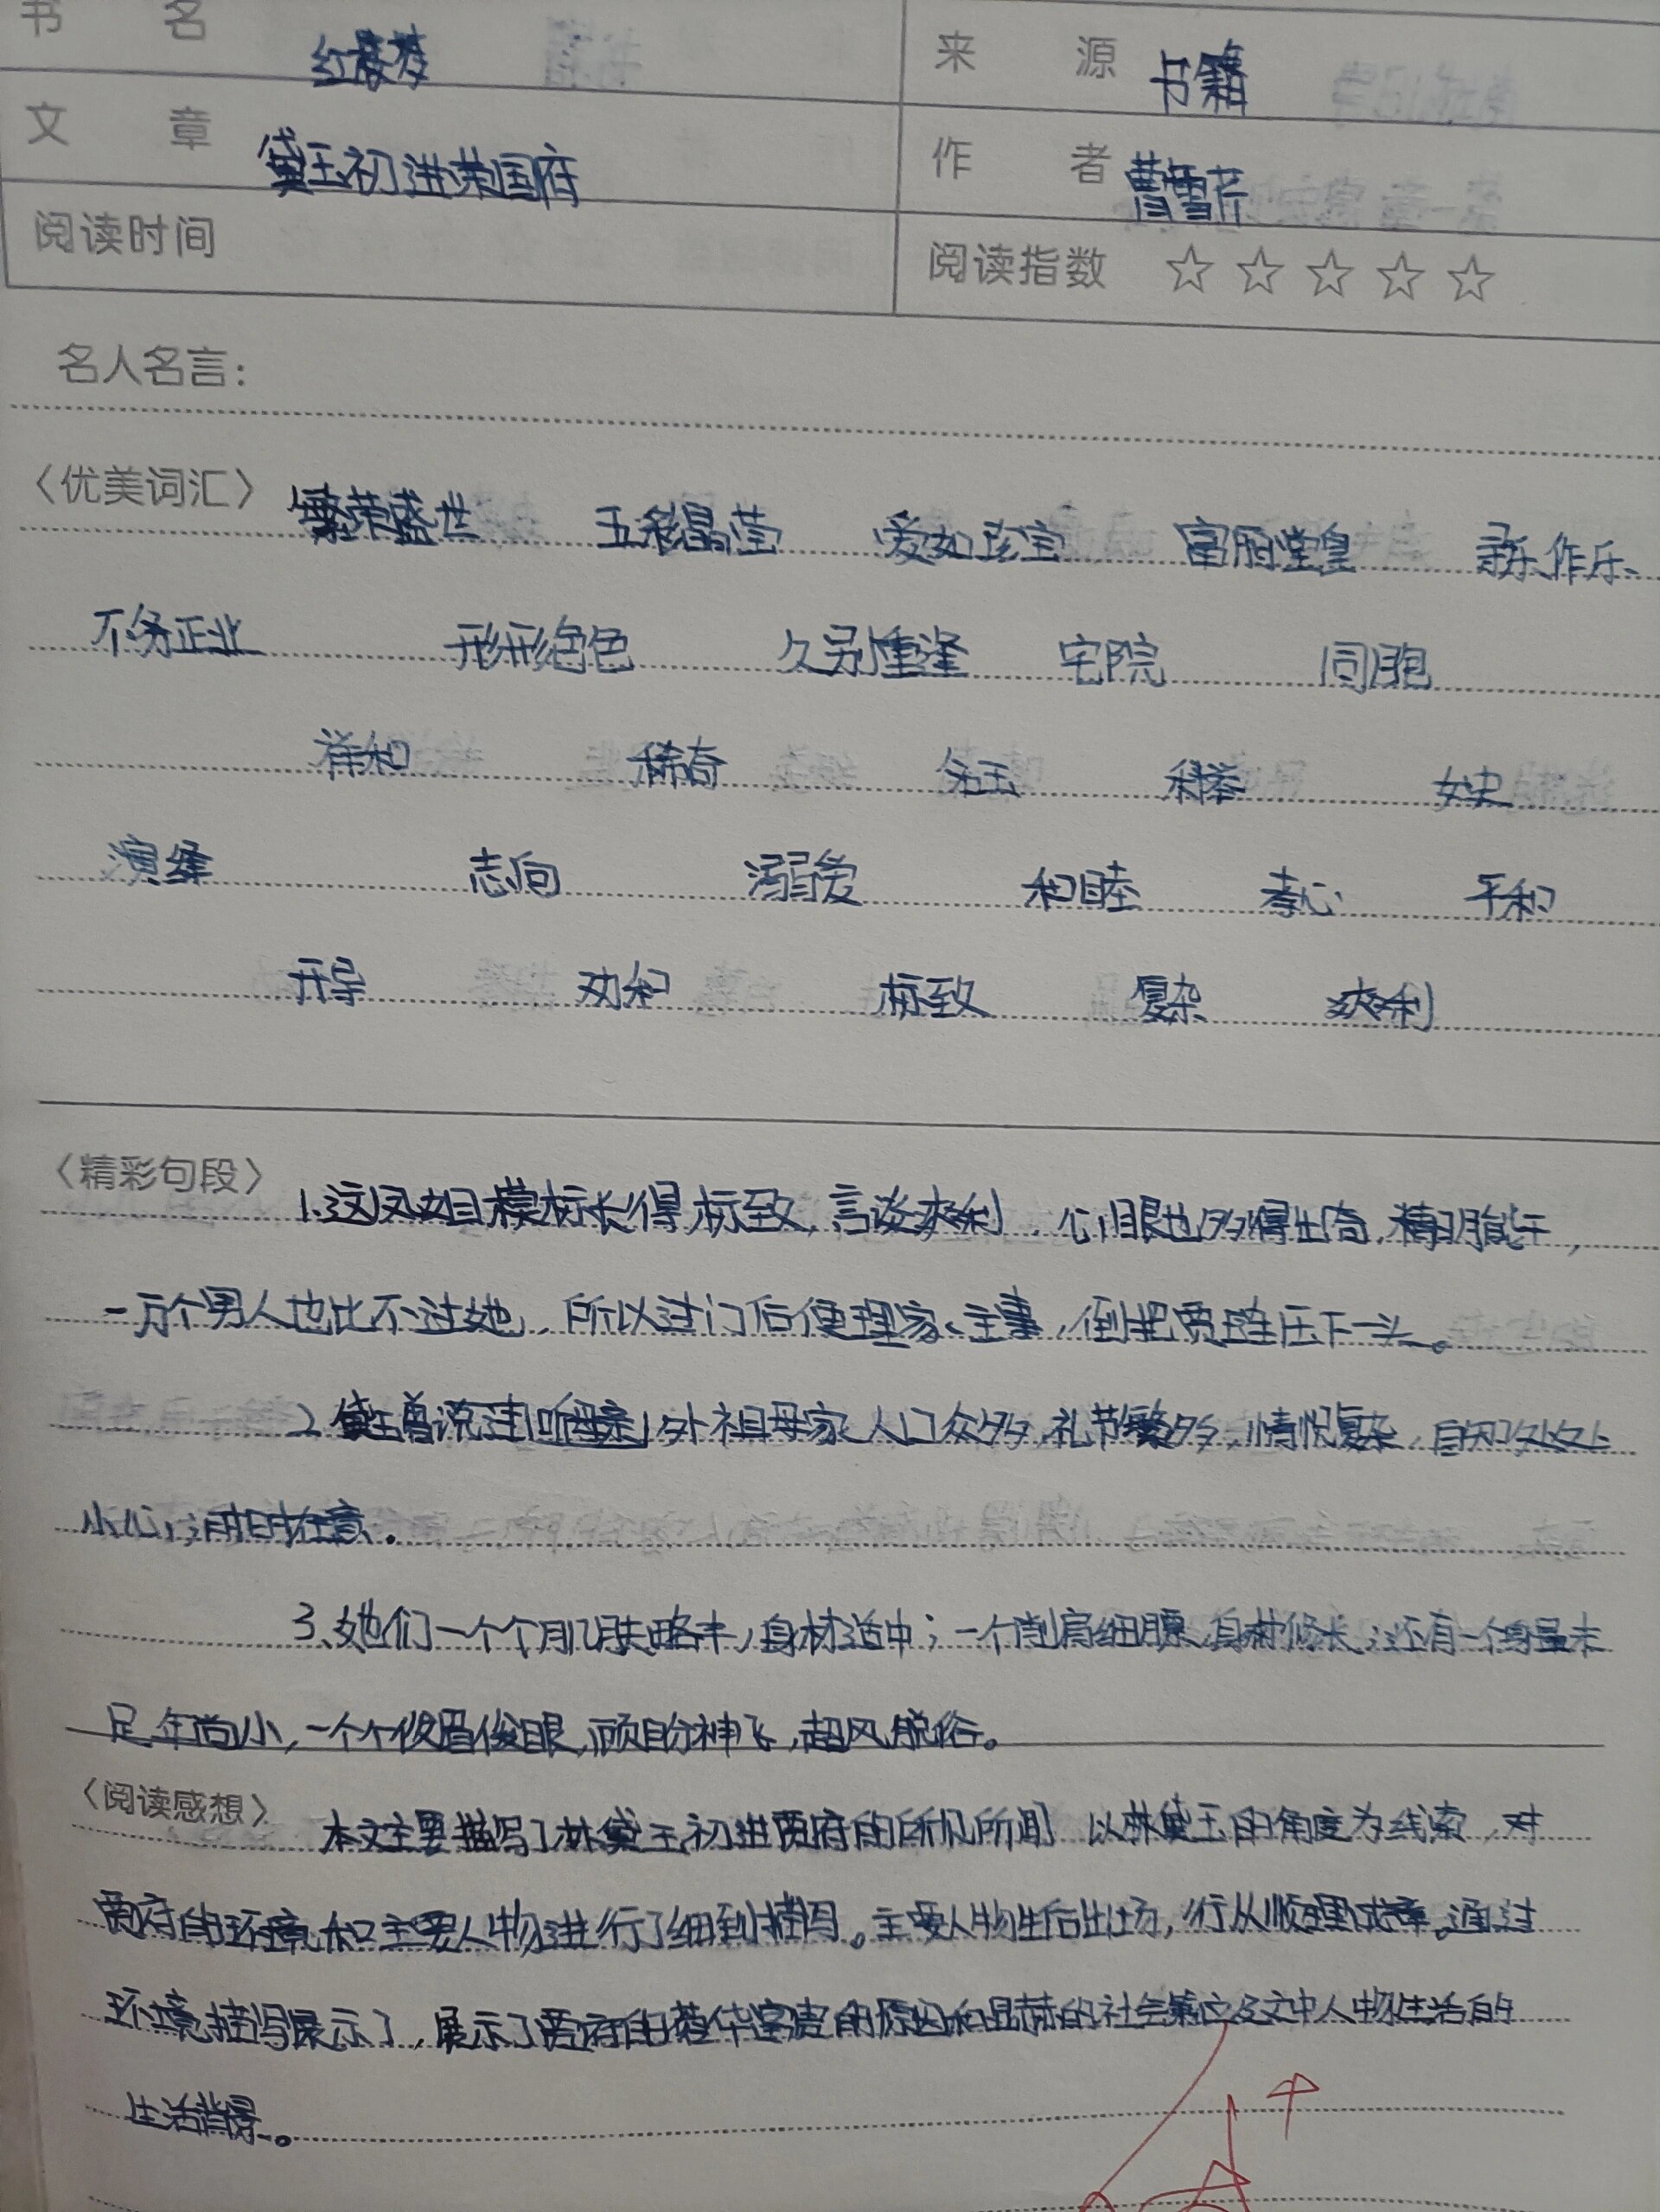 书 名 红楼梦 来 源 书籍
文 章 黛玉初进荣国府 作 者 曹雪芹
阅读时间 阅读指数 ☆ ☆ ☆ ☆ ☆
名人名言：
〈优美词汇〉 繁荣盛世 五彩晶莹 爱如珍宝 富丽堂皇 寻乐作乐、
不务正业 形形色色 久别重逢 宅院 同胞
祥和 稀奇 宝玉 科举
演绎 志向 溺爱 和睦 孝心 平和
开导 劝和 标致 复杂 爽利
〈精彩句段〉 1.这凤姐模标长得标致，言谈爽利，心眼也多得出奇，精明能干，
一万个男人也比不过她，所以过门后便理家、主事，倒把贾琏压下一头。
2、黛玉曾说过听母亲外祖母家人口众多，礼节繁多，情况复杂，自知处处
小心，时时在意。
3、她们一个个肌肤略丰，身材适中；一个削肩细腰，身材修长；还有一个身量未
足年尚小，一个个俊眉俊眼，顾盼神飞，超风脱俗。
〈阅读感想〉 本文主要描写了林黛玉初进贾府的所见所闻 以林黛玉的角度为线索，对
贾府的环境和主要人物进行了细到描写。主要人物先后出场，行从顺理成章。通过
环境描写展示了，展示了贾府的荣华富贵的原因和显赫的社会地位及文中人物生活的
生活背景。